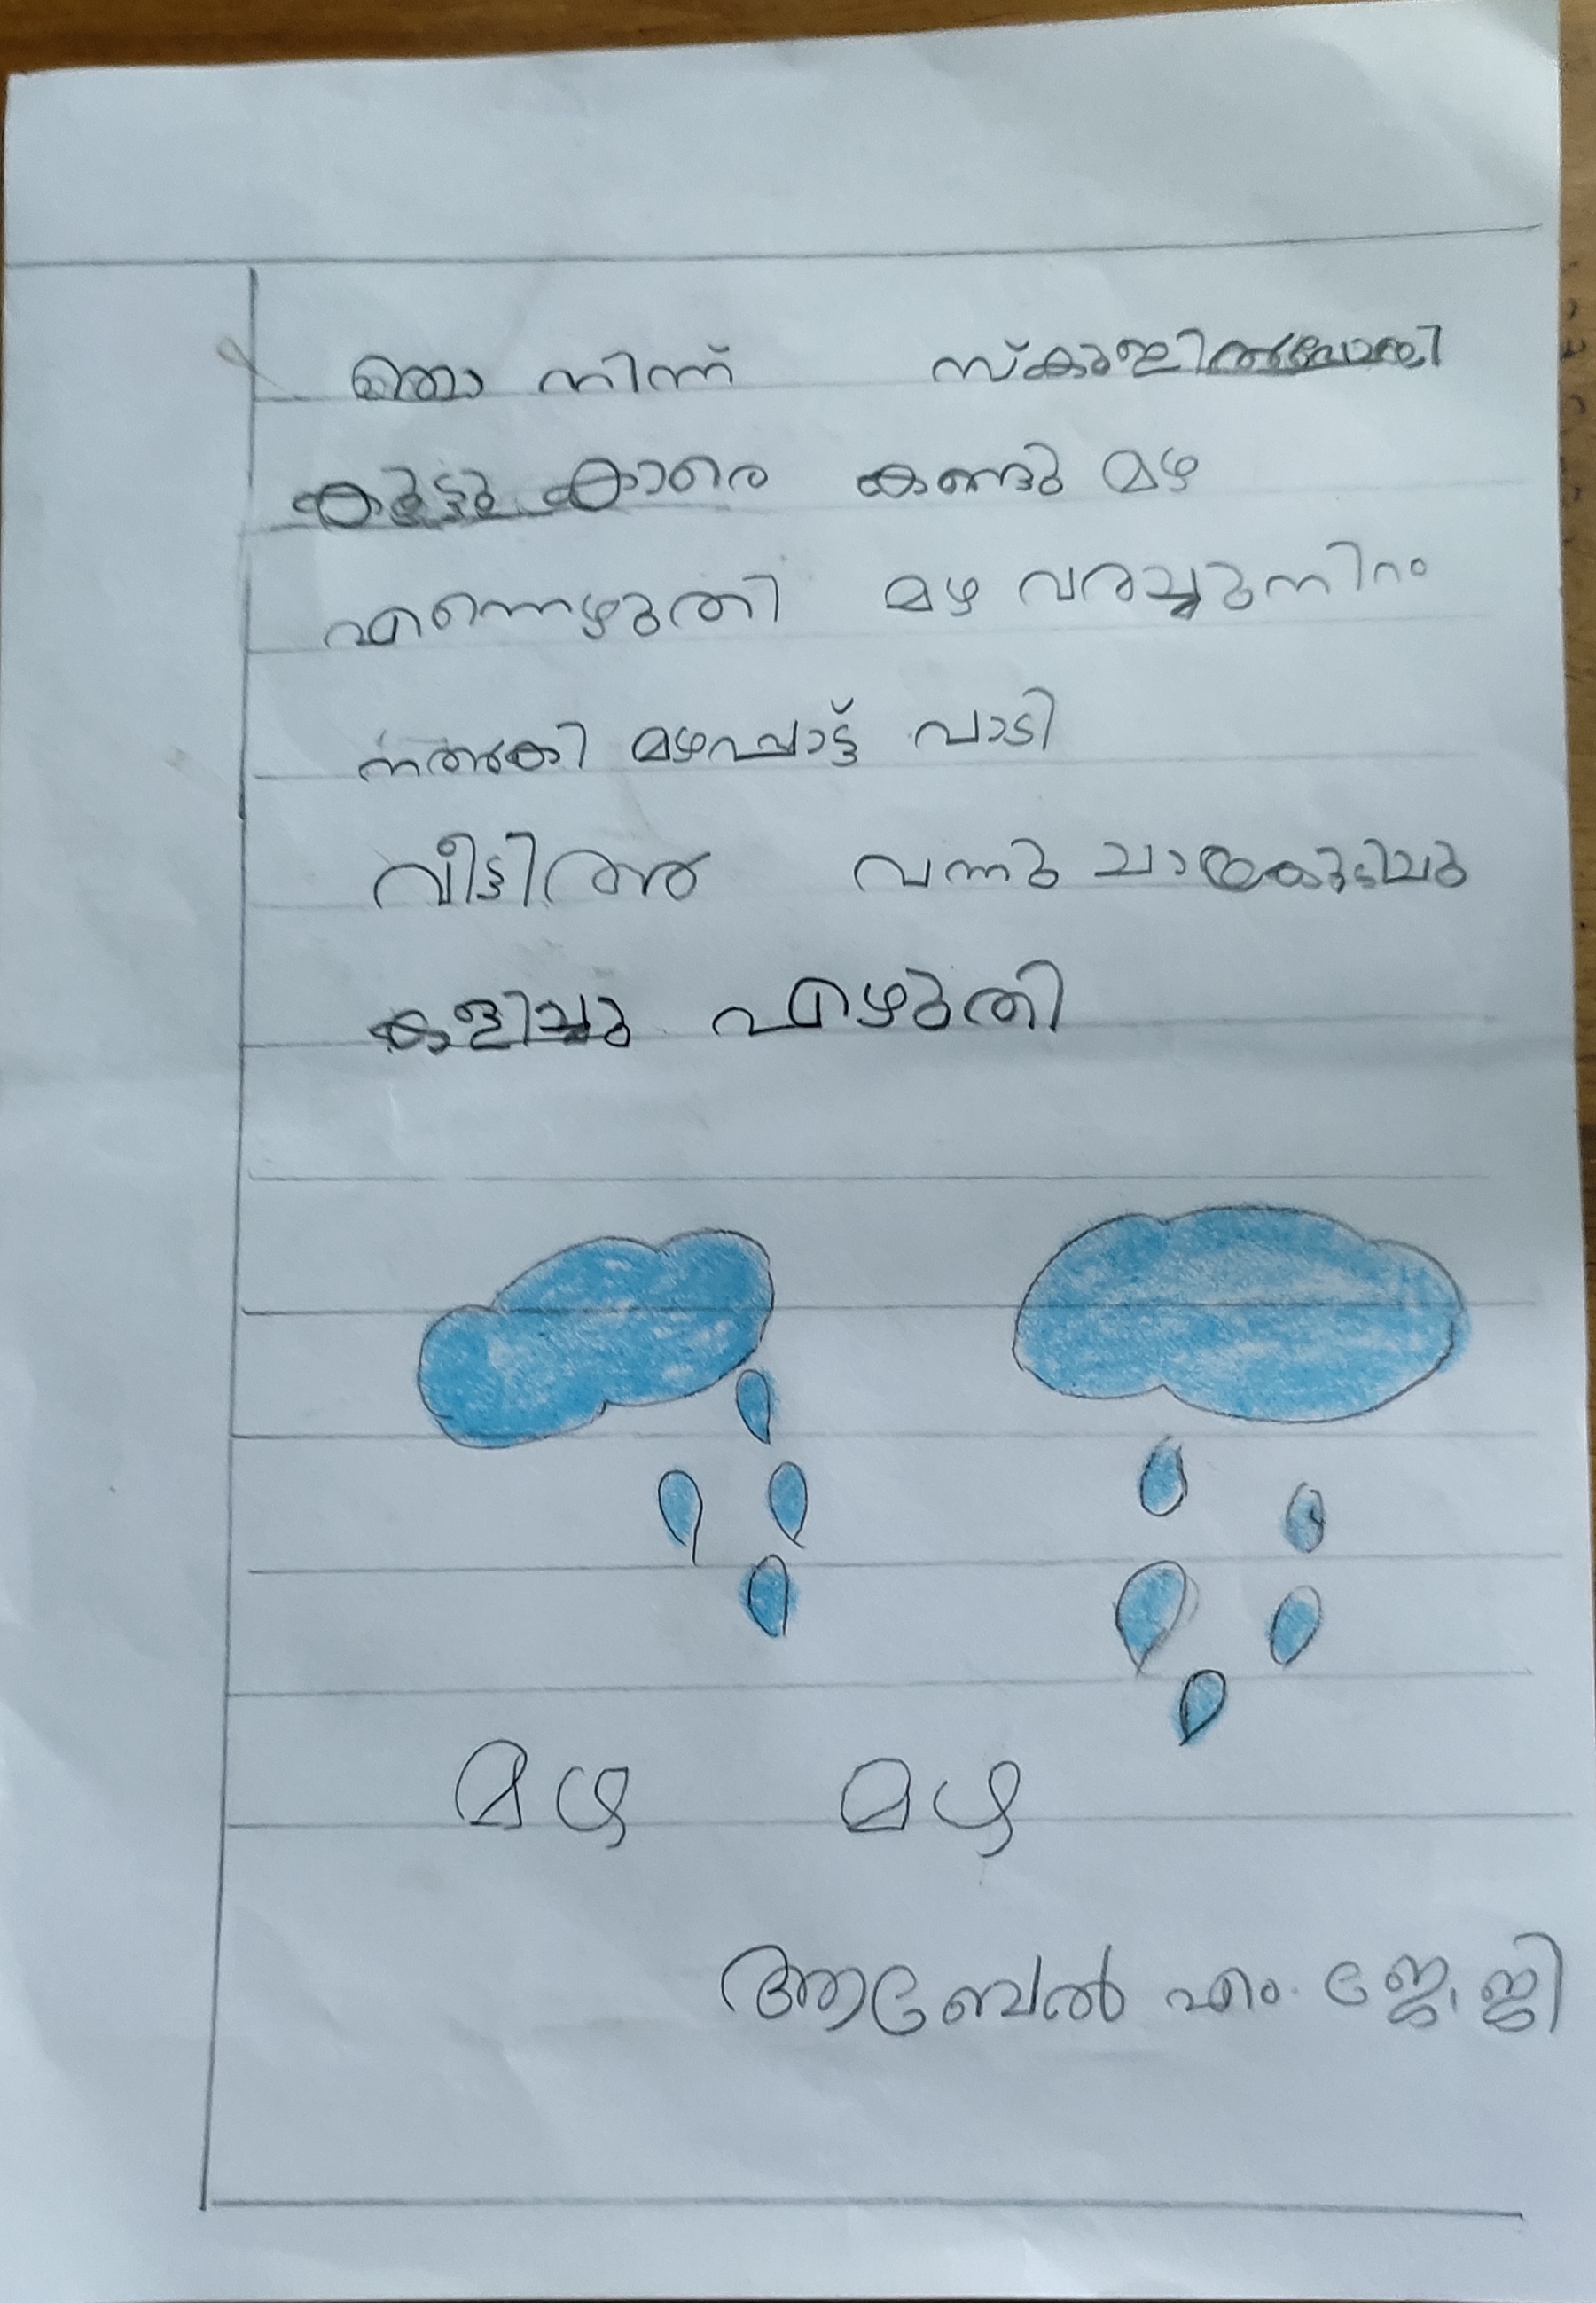 ഞാ നിന്ന് സ്കുളിൽപോയി
കുട്ടുകാരെ കണ്ടു മഴ
എന്നെഴുതി മഴ വരച്ചുനിറം
നൽകി മഴപ്പാട്ട് പാടി
വീട്ടിൽ വന്നു ചായകുടിചു
കളിച്ചു എഴുതി
മഴ മഴ
ആബേൽ എം. ജേ. ജി